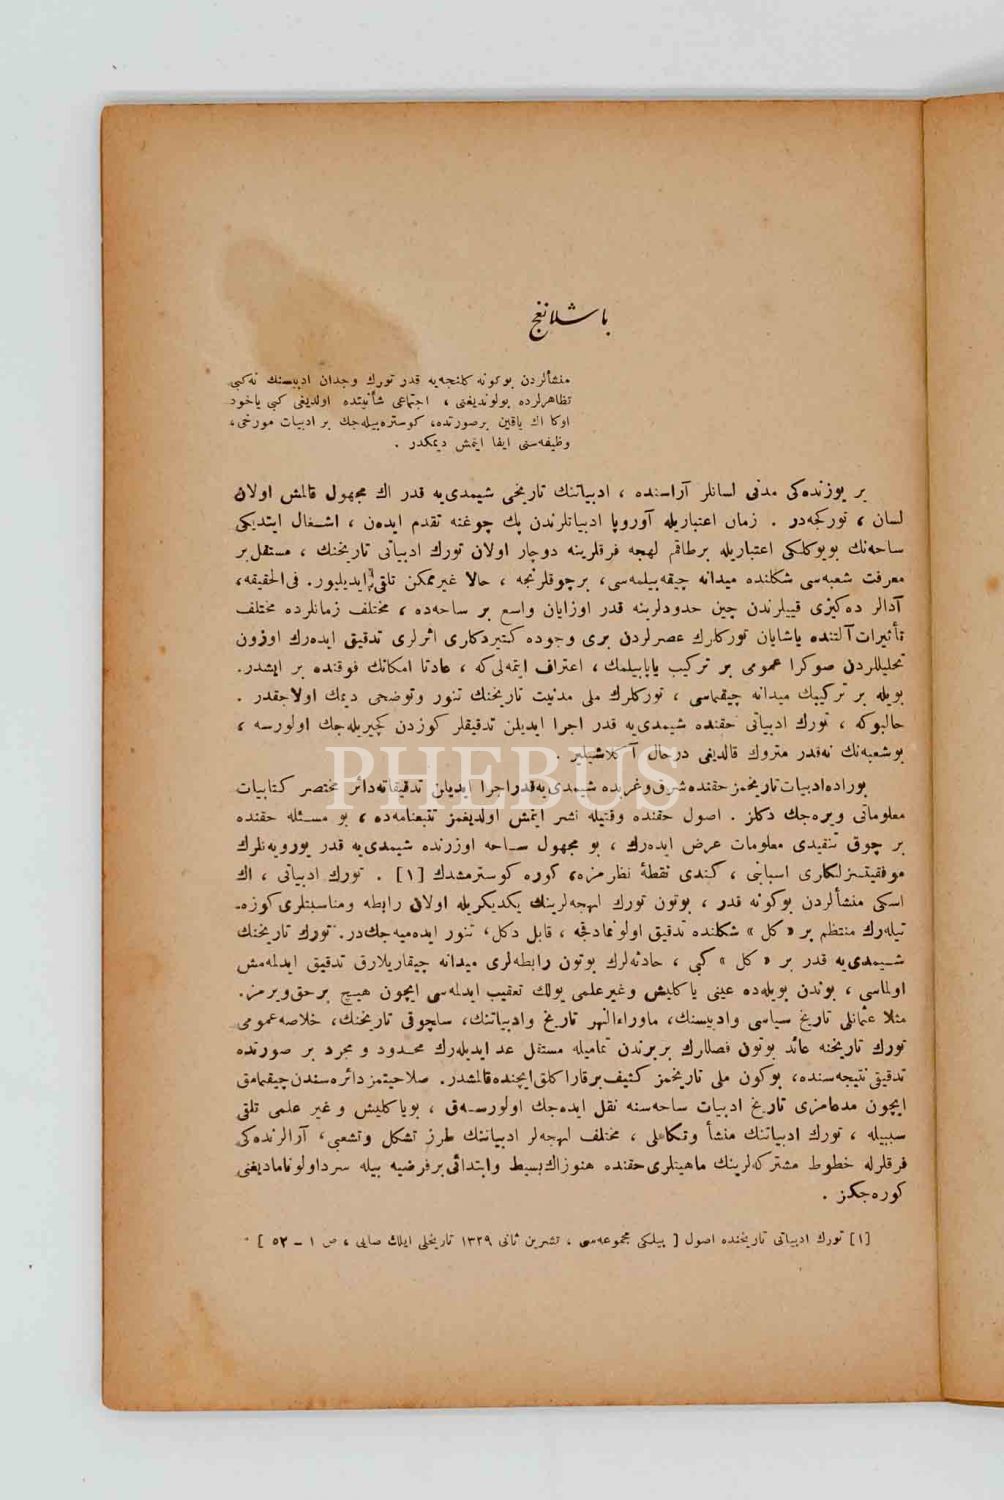 باشلانغج
منشألردن بوكونه كلنجه‌يه قدر تورك وجدان ادبيسنك نه‌كبى
تظاهرلرده بولونديغى ، اجتماعى شأنيتده اولديغى كبى ياخود
اوكا اك ياقين برصورتده، كوستره‌بيله‌جك بر ادبيات مورخى،
وظيفه‌سنى ايفا ايتمش ديمكدر .
ير يوزنده‌كى مدنى لسانلر آراسنده ، ادبياتنك تاريخى شيمدى‌يه قدر اك مجهول قالمش اولان
لسان ، توركجه‌در . زمان اعتباريله آوروپا ادبياتلرندن پك چوغنه تقدم ايده‌ن ، اشغال ايتديكى
ساحه‌نك بويوكلكى اعتباريله برطاقم لهجه فرقلرينه دوچار اولان تورك ادبياتى تاريخنك ، مستقل بر
معرفت شعبه‌سى شكلنده ميدانه چيقه‌بيلمه‌سى، برچوقلرنجه ، حالا غيرممكن تلقى ايديليور. فى‌الحقيقه،
آدالر ده‌كيزى قييلرندن چين حدودلرينه قدر اوزايان واسع بر ساحه‌ده ، مختلف زمانلرده مختلف
تأثيرات آلتنده ياشايان توركلرك عصرلردن برى وجوده كتيردكلرى اثرلرى تدقيق ايده‌رك اوزون
تحليللردن صوكرا عمومى بر تركيب ياپابيلمك، اعتراف ايتمه‌لى‌كه ، عادتا امكانك فوقنده بر ايشدر.
بويله بر تركيبك ميدانه چيقماسى ، توركلرك ملى مدنيت تاريخنك تنور وتوضحى ديمك اولاجقدر .
حالبوكه ، تورك ادبياتى حقنده شيمدى‌يه قدر اجرا ايديلن تدقيقلر كوزدن كچيريله‌جك اولورسه ،
بوشعبه‌نك نه‌قدر متروك قالديغى درحال آكلاشيلير .
PHEBUS
بوراده ادبيات تاريخمز حقنده شرق وغربده شيمدى‌يه قدر اجرا ايديلن تدقيقاته دائر مختصر كتابيات
معلوماتى ويره‌جك دكلز . اصول حقنده وقتيله نشر ايتمش اولديغمز تتبعنامه‌ده ، بو مسئله حقنده
بر چوق تنقيدى معلومات عرض ايده‌رك ، بو مجهول ساحه اوزرنده شيمدى‌يه قدر يورويه‌نلرك
موفقيتسزلكلرى اسبابنى ، كندى نقطهٔ نظرمزه، كوره كوسترمشدك [١] . تورك ادبياتى ، اك
اسكى منشألردن بوكونه قدر ، بوتون تورك لهجه‌لرينك يكديكريله اولان رابطه ومناسبتلرى كوزه-
تيله‌رك منتظم بر « كل » شكلنده تدقيق اولونمادقجه ، قابل دكل، تنور ايده‌ميه‌جكدر. تورك تاريخنك
شيمدى‌يه قدر بر « كل » كبى ، حادثه‌لرك بوتون رابطه‌لرى ميدانه چيقاريلارق تدقيق ايدلمه‌مش
اولماسى ، بوندن بويله‌ده عينى ياكليش وغيرعلمى يولك تعقيب ايدلمه‌سى ايچون هيچ برحق‌ويرمز.
مثلا عثمانلى تاريخ سياسى وادبيسنك، ماوراءالنهر تاريخ وادبياتنك، ساچوقى تاريخنك، خلاصه عمومى
تورك تاريخنه عائد بوتون فصللرك بربرندن تماميله مستقل عد ايديله‌رك محدود و مجرد بر صورتده
تدقيقى نتيجه‌سنده، بوكون ملى تاريخمز كثيف بر قارا كلق ايچنده قالمشدر. صلاحيتمز دائره‌سندن چيقمامق
ايچون مدعامزى تاريخ ادبيات ساحه‌سنه نقل ايده‌جك اولورسه‌ق ، بوياكليش و غير علمى تلقى
سببيله ، تورك ادبياتنك منشأ وتكاملى ، مختلف لهجه‌لر ادبياتنك طرز تشكل وتشعبى، آرالرنده‌كى
فرقلرله خطوط مشتركه‌لرينك ماهيتلرى حقنده هنوز اك بسيط وابتدائى برفرضيه بيله سرد اولونماديغنى
كوره‌جكز .
[١] تورك ادبياتى تاريخنده اصول [ بيلكى مجموعه‌سى ، تشرين ثانى ١٣٢٩ تاريخلى ايلك صايى ، ص ١ - ٥٢ ]